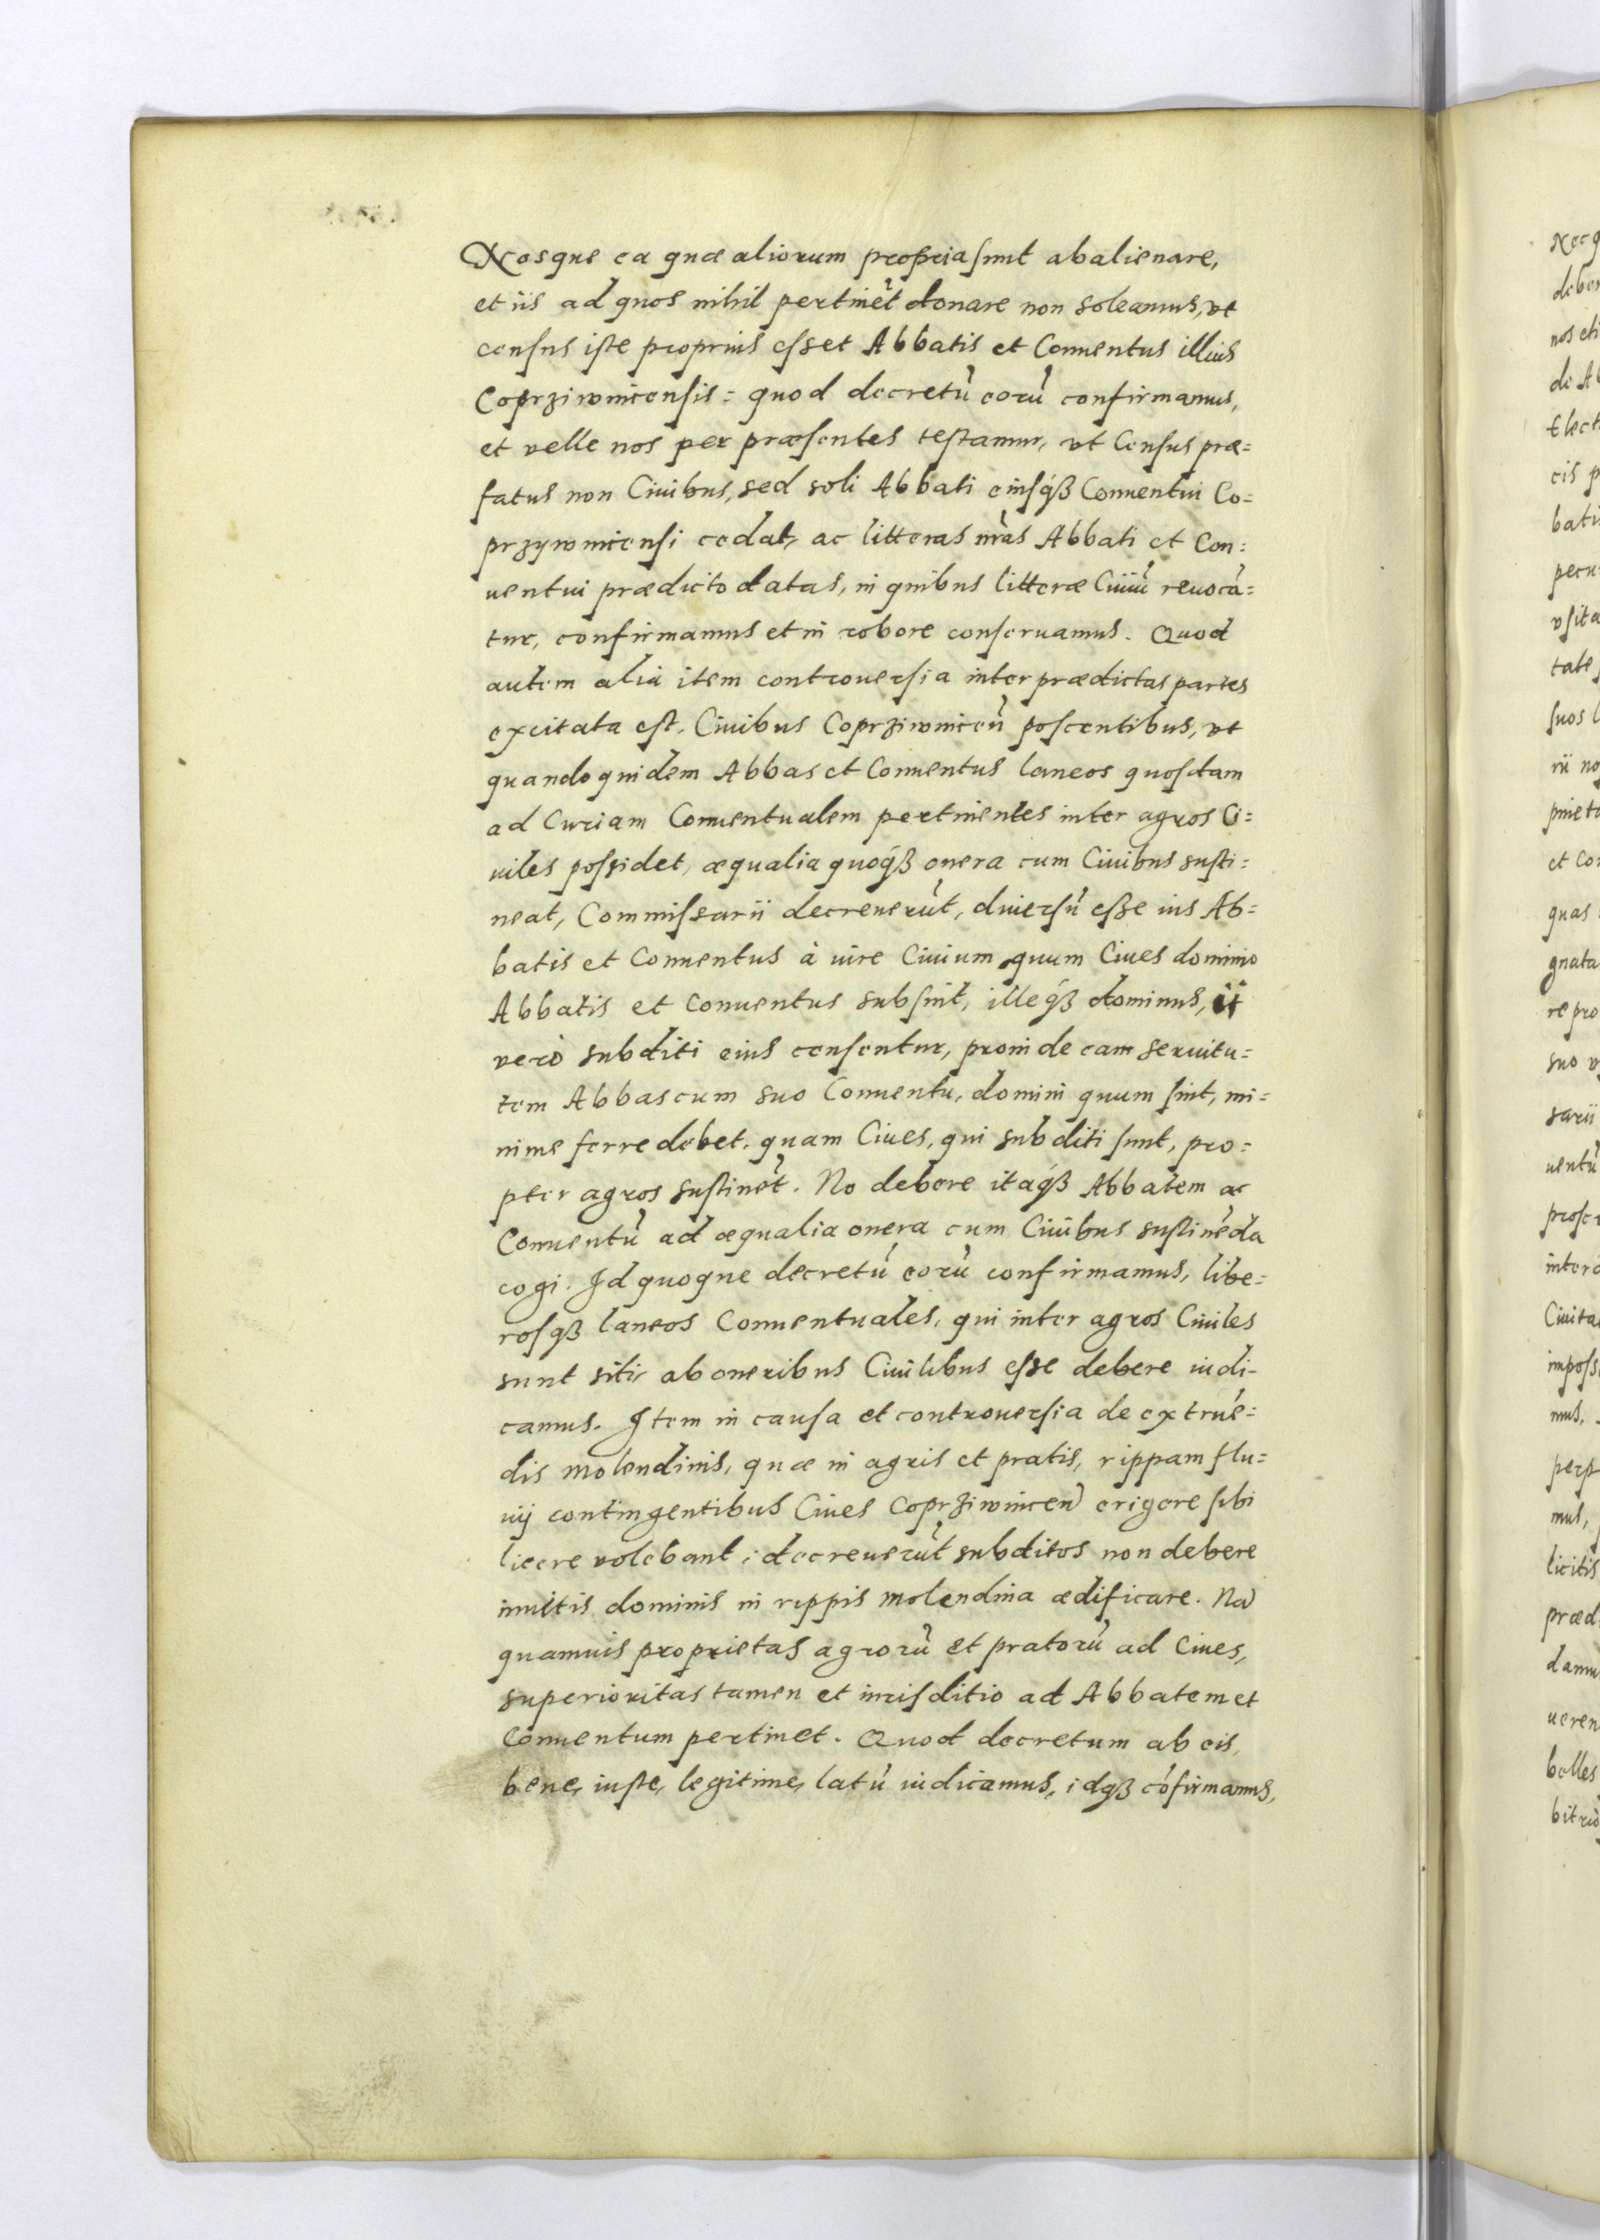 Nosque ea quæ aliorum propria sunt abalienare,
et iis ad quos nihil pertinēt donare non soleamus, vt
census iste proprius esset Abbatis et Conuentus illius
Coprziwnicensis: quod decretū eorū confirmamus,
et velle nos per præsentes testamur, vt Census præ=
fatus non Ciuibus, sed soli Abbati eiusqꝫ Conuentui Co=
przywnicensi cedat, ac litteras nr̄as Abbati et Con=
uentui prædicto datas, in quibus litteræ Ciuiū reuocā=
tur, confirmamus et in robore conseruamus. Quod
autem alia item controuersia inter prædictas partes
excitata est, Ciuibus Coprziwniceñ poscentibus, vt
quandoquidem Abbas et Conuentus laneos quosdam
ad Curiam Conuentualem pertinentes inter agros Ci=
uiles possidet, æqualia quoqꝫ onera cum Ciuibus susti=
neat, Commissarii decreuerūt, diuersū esse ius Ab=
batis et Conuentus à iure Ciuium, quum Ciues dominio
Abbatis et Conuentus subsint, illeqꝫ dominus, ii
verò subditi eius censentur, proinde eam seruitu=
tem Abbas cum suo Conuentu, domini quum sint, mi=
nime ferre debet, quam Ciues, qui subditi sunt, pro=
pter agros sustinēt. No debere itaqꝫ Abbatem ac
Conuentū ad æqualia onera cum Ciuibus sustinēda
cogi. Id quoque decretū eorū confirmamus, libe=
rosqꝫ laneos Conuentuales, qui inter agros Ciuiles
sunt siti, ab oneribus Ciuilibus esse debere iudi=
camus. Item in causa et controuersia de extruē=
dis molendinis, quæ in agris et pratis, rippam flu=
uij contingentibus Ciues Coprziwniceñ erigere sibi
licere volebant, decreuerūt subditos non debere
inuitis dominis in rippis molendina ædificare. Nā
quamuis proprietas agrorū et pratorū ad Ciues,
superioritas tamen et iurisditio ad Abbatem et
Conuentum pertinet. Quod decretum ab eis,
bene, iuste, legitime, latū iudicamus, idqꝫ cōfirmamus,